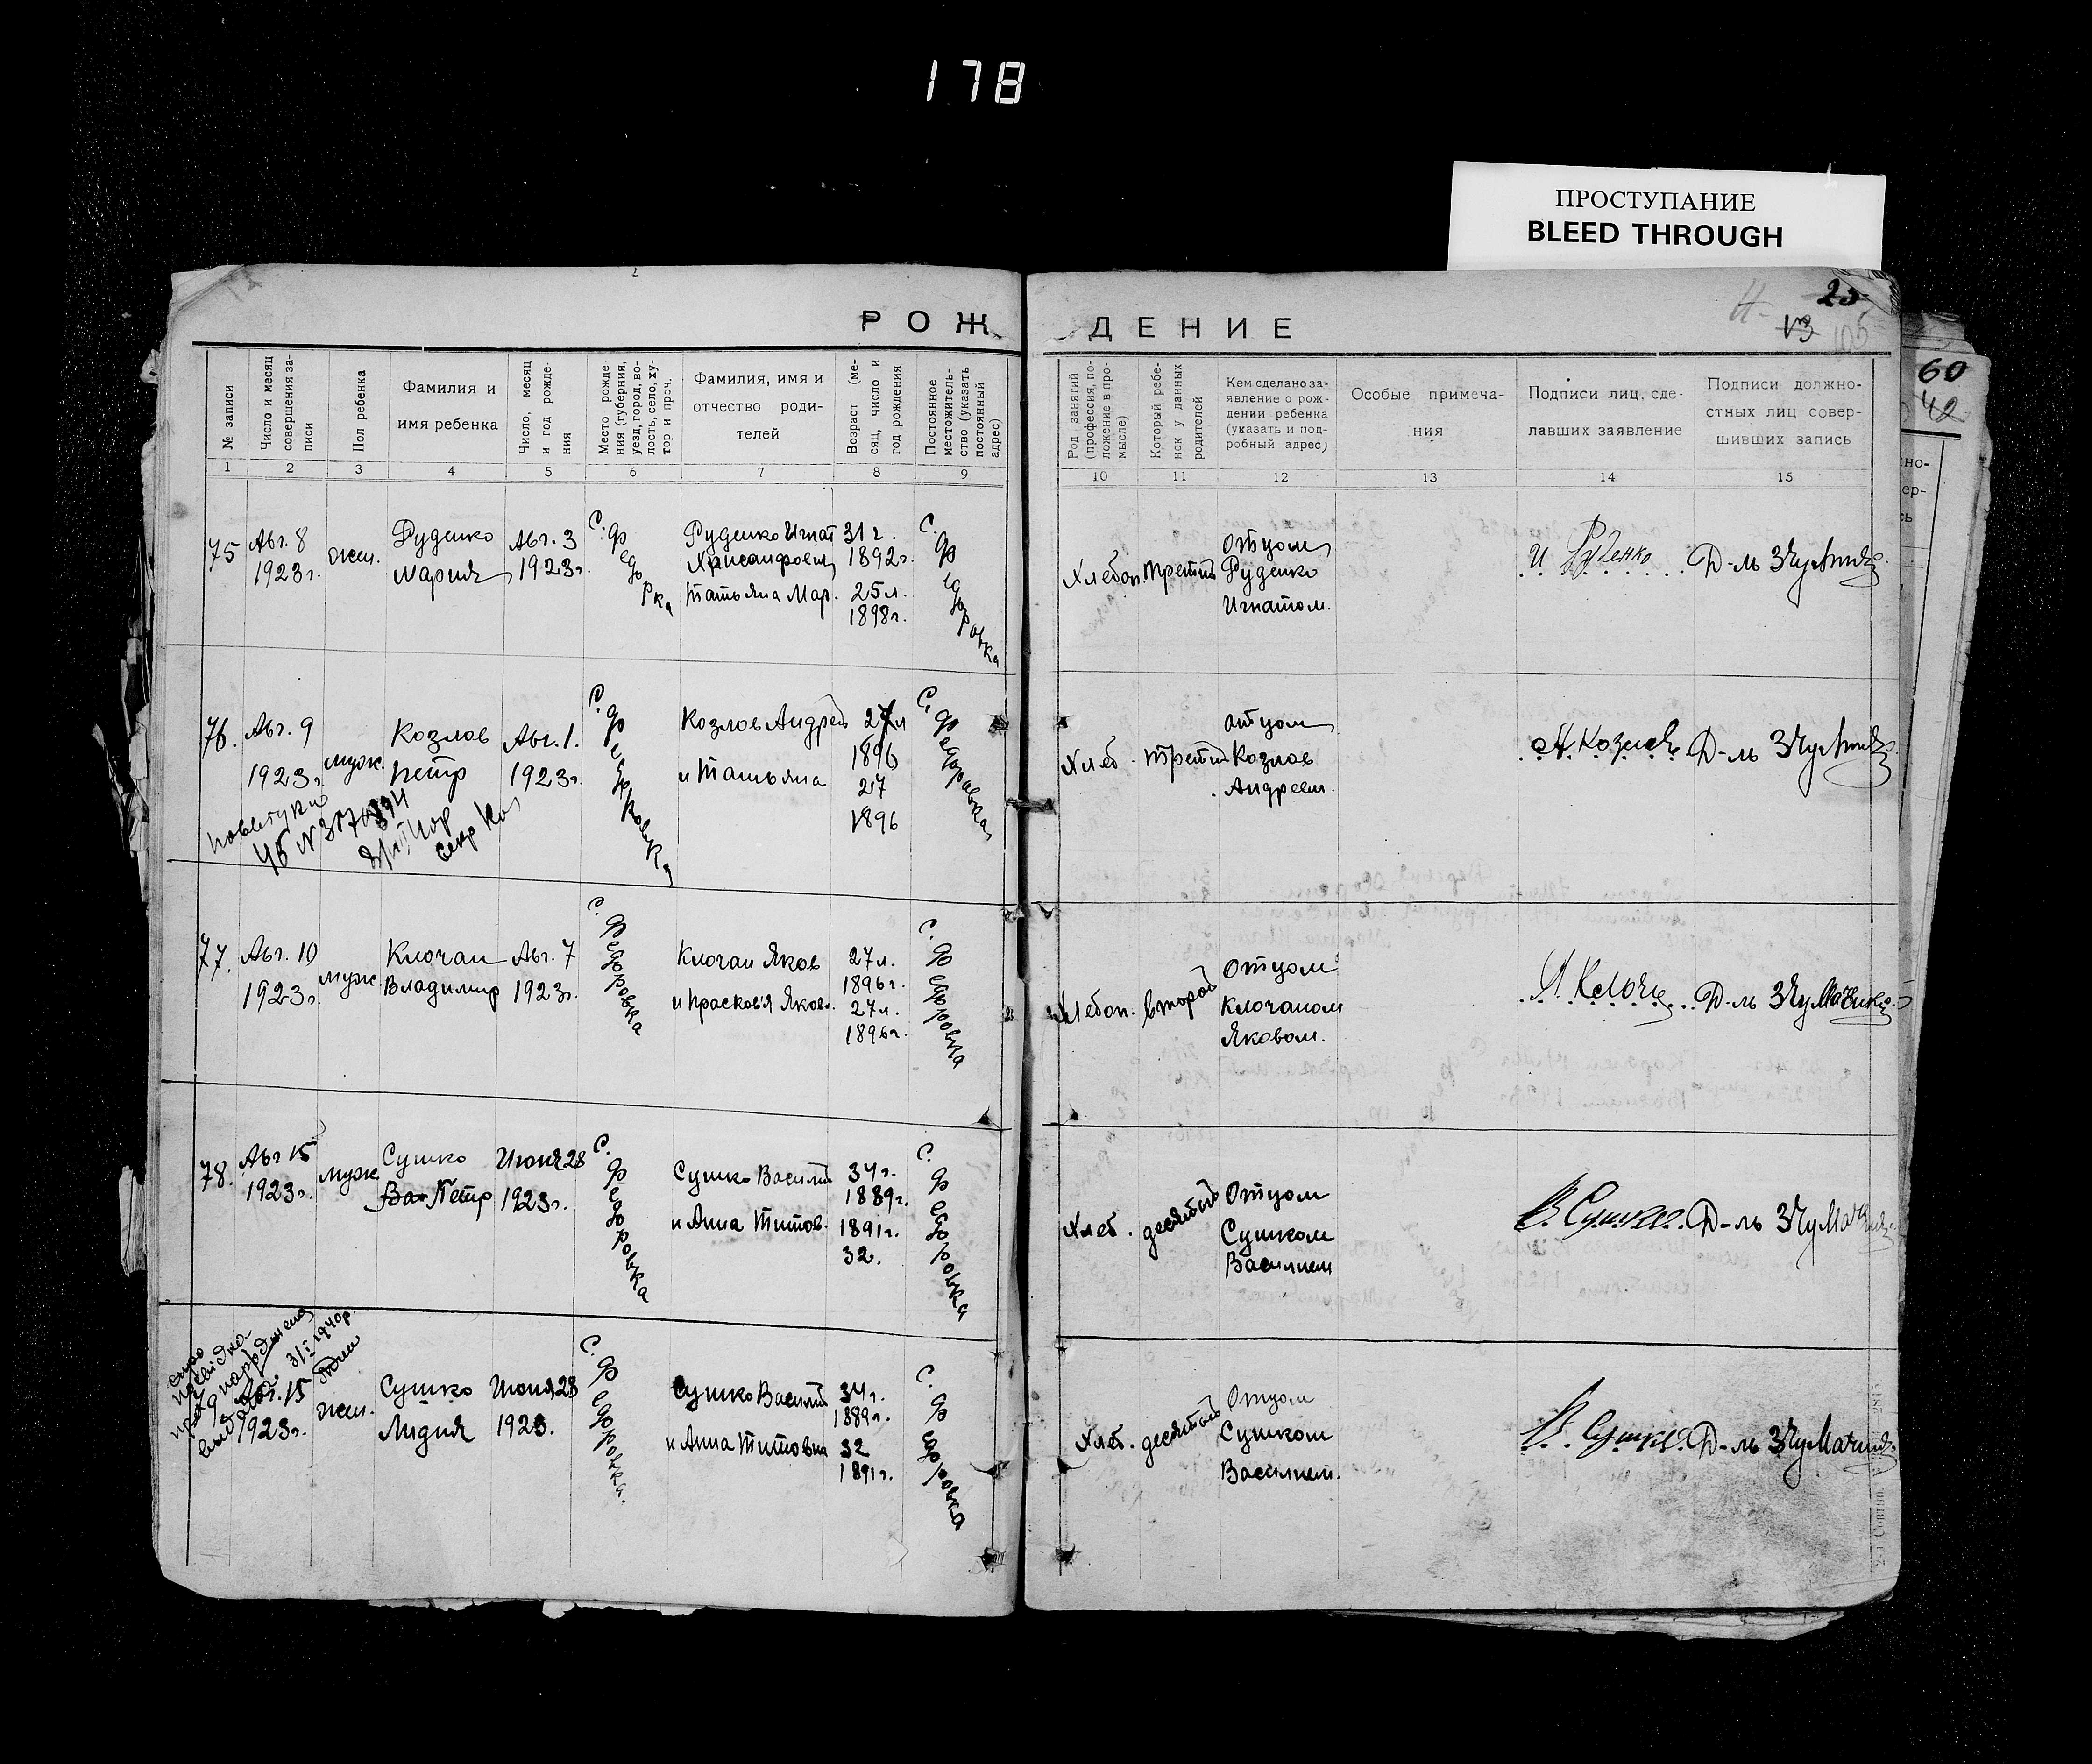 178
ПРОСТУПАНИЕ
BLEED THROUGH
РОЖДЕНИЕ
25
13
105
60
42
№ записи
Число и месяц совершения за-
писи
Пол ребенка
Фамилия и
имя ребенка
Число, месяц
и год рожде-
ния
Место рожде-
ния (губерния,
уезд, город, во-
лость, село, ху-
тор и проч.
Фамилия, имя и
отчество роди-
телей
Возраст (ме-
сяц, число и
год рождения
Постоянное
местожитель-
ство (указать
постоянный
адрес)
Род занятий
(профессия, по-
ложение в про-
мысле)
Который ребе-
нок у данных
родителей
Кем сделано за-
явление о рож-
дении ребенка
(указать и под-
робный адрес)
Особые примеча-
ния
Подписи лиц, сде-
лавших заявление
Подписи должно-
стных лиц совер-
шивших запись
1 2 3 4 5 6 7 8 9 10 11 12 13 14 15
75
Авг. 8
1923г.
жен.
Руденко
Мария
Авг. 3
1923г.
с. Федорка
Руденко Игнат
Хрисанфович
Татьяна Мар.
31г.
1892г.
25л.
1898г.
с. Федоровка
Хлебоп.
третий
Отцом
Руденко
Игнатом.
И Руденко
Д-ль
76.
Авг. 9
1923г.
муж.
Козлов
Петр
Авг. 1.
1923г.
с. Федоровка
Козлов Андрей
и Татьяна
27л
1896
27
1896
с. Федоровка
Хлеб.
третий
Отцом
Козлов
Андреем.
А Козлов
Д-ль
77.
Авг. 10
1923г.
муж.
Клочан
Владимир
Авг. 7
1923г.
с. Федоровка
Клочан Яков
и Прасковья Яков.
27л.
1896г.
27л.
1896г.
с. Федоровка
Хлебоп.
второй
Отцом
Клочаном
Яковом.
Д-ль
78.
Авг 15
1923г.
муж
Сушко
Ва Петр
Июня 28
1923г.
с. Федоровка
Сушко Василий
и Анна Титов.
34г.
1889г.
1891г.
32.
с. Федоровка
Хлеб.
десятый
Отцом
Сушком
Василием
В. Сушко
Д-ль
31/I 1940р.
Авг. 15
1923г.
жен.
Сушко
Лидия
Июня 28
1923.
с. Федоровка.
Сушко Василий
и Анна Титовна
34г.
1889г.
32
1891г.
с. Федоровка
Хлеб.
десятый
Отцом
Сушком
Василием.
В. Сушко
Д-ль